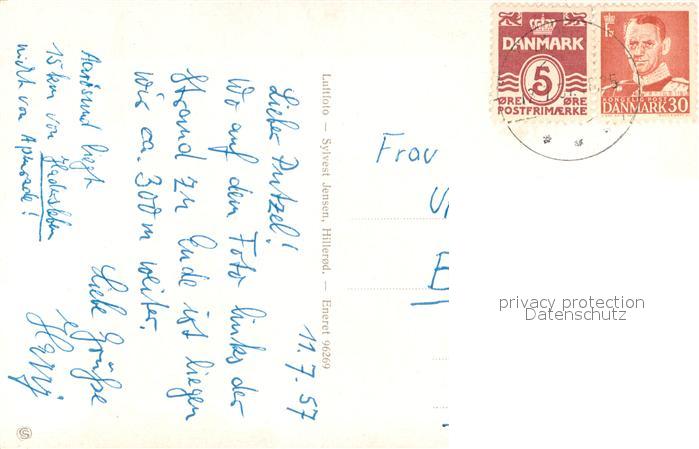 11.7.57
Lieber Putzel!
Wo auf dem Foto links der
Strand zu Ende ist liegen
wir ca. 300m weiter.
Liebe Grüße
Aarösund liegt
15 km von Hadersleben
nicht von Apenrade!
Luftfoto — Sylvest Jensen, Hillerød. — Eneret 96269
DANMARK
5
ØRE ØRE
POSTFRIMÆRKE
DANMARK 30
Frau
privacy protection
Datenschutz